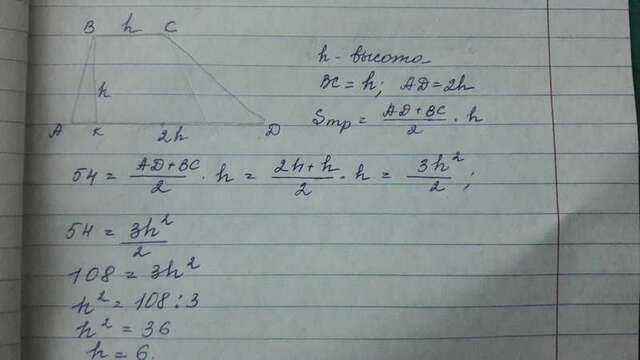 B h C
h
A K 2h D
h - высота
BC = h; AD = 2h
Sтр = AD + BC / 2 · h
54 = AD + BC / 2 · h = 2h + h / 2 · h = 3h² / 2 ;
54 = 3h² / 2
108 = 3h²
h² = 108 : 3
h² = 36
h = 6.